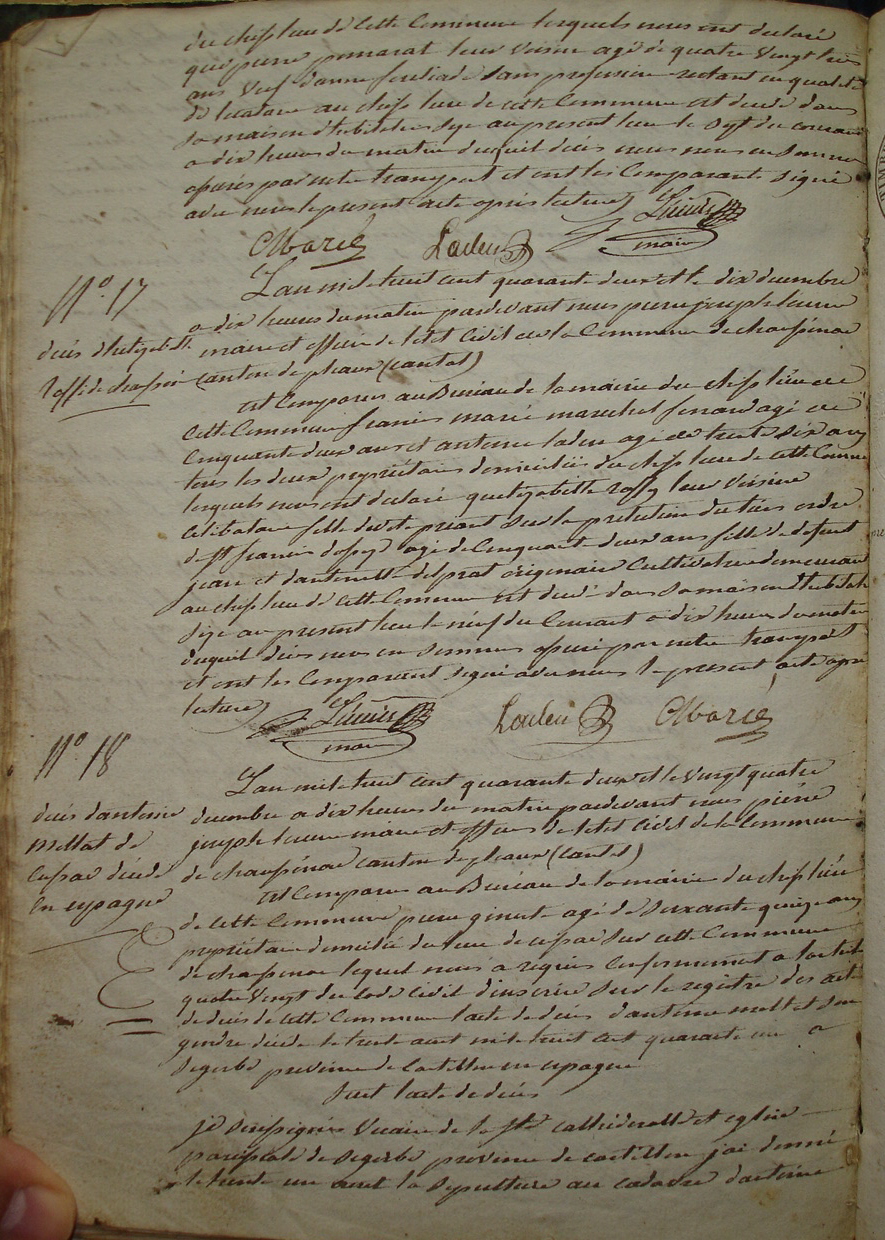 du chef lieu de cette Commune lesquels nous ont declaré
que pierre pomarat leur voisin agé de quatre vingt trois
ans veuf danne sans profession restant en qualité
de locataire au chef lieu de cette Commune est decedé dans
sa maison dhabitation size au present lieu le du courant
a dix heures du matin duquel décès nous nous en sommes
assurés par notre transport et ont les Comparants signé
avec nous le present acte apres lecture
CMarcé Laden
maire
N° 17
décès d'helizabette
roffi de chaussi
L'an mil huit cent quarante deux et le dix decembre
a dix heures du matin pardevant nous pierre joseph
maire et officier de letat Civil de la Commune de chaussenac
canton de pleaux (cantal)
est Comparus au Bureau de la mairie du chef lieu de
cette Commune francois marcé marechal ferrand agé de
Cinquante deux ans et antoine laden agé de trente six ans
tous les deux propriétaires domiciliés du chef lieu de cette Commune
lesquels nous ont declaré quelizabette leur voisine
celibataire fille devote du tiers ordre
de st francois agé de Cinquante deux ans fille de defunt
jean et dantoinette delprat originaire Cultivatrice demeurant
au chef lieu de cette Commune est decedé dans sa maison dhabitation
size au present lieu le neuf du Courant a dix heures du matin
duquel décès nous en sommes assuré par notre transport
et ont les Comparants signé avec nous le present acte apres
lecture
maire Laden CMarcé
N° 18
décès dantoine
mellat de
décédé
En espagne
L'an mil huit cent quarante deux et le vingt quatre
decembre a dix heures du matin pardevant nous pierre
joseph maire et officier de letat Civil de la Commune
de chaussenac canton de pleaux (cantal)
est Comparus au Bureau de la mairie du chef lieu
de cette Commune pierre agé de soixante quinze ans
propriétaire domicilié du lieu de sur cette Commune
de chaussenac lequel nous a requis Conformement a larticle
quatre vingt du Code Civil d'inscrire sur le registre des actes
de décès de cette Commune lacte de décès dantoine mellat son
gendre décédé le trente aout mil huit cent quarante un a
Segorbe province de castillon en espagne
Suit lacte de décès
je soussigné Vicaire de la ste cathédralle et eglise
paroissiale de Segorbe province de castillon jai donné
le trente un aout la sepulture au cadavre dantoine